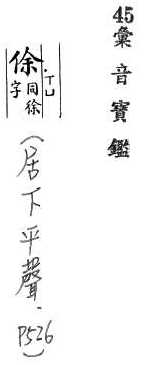 45彙音寶鑑
徐 ㄒㄩˊ 同徐字
(居下平聲.P526)